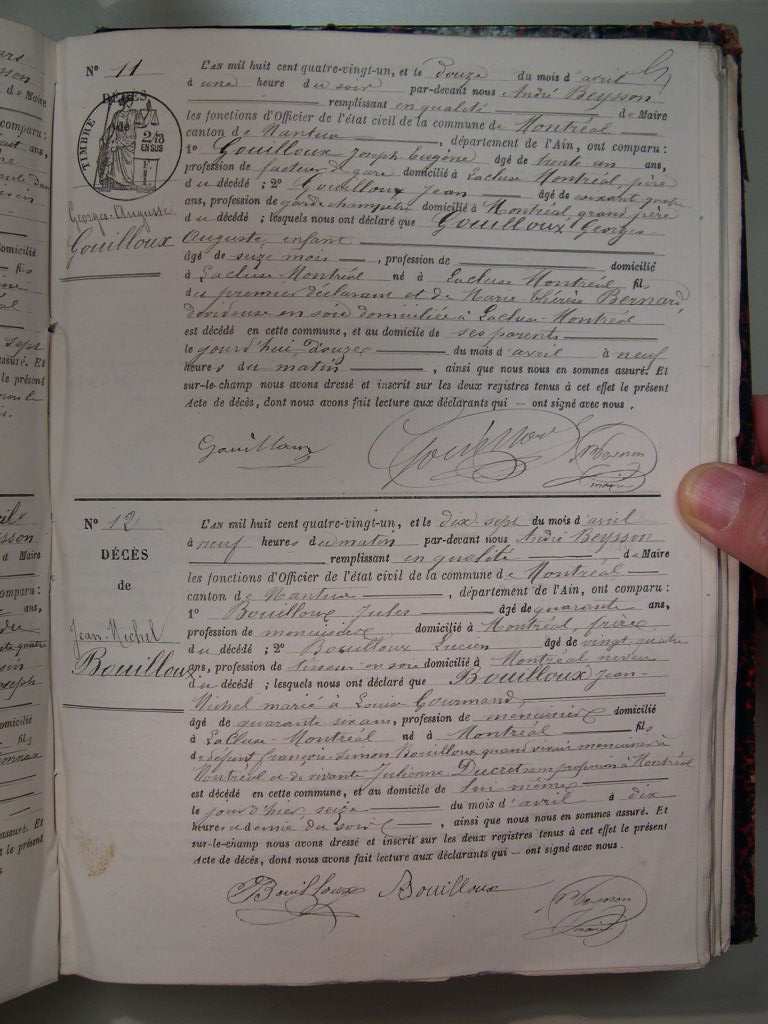 N° 11
DÉCÈS
TIMBRE
2/10
EN SUS
Georges-Auguste
Gouilloux
L'AN mil huit cent quatre-vingt-un, et le douze du mois d'avril
à une heure du soir par-devant nous André Beysson
remplissant en qualité de Maire
les fonctions d'Officier de l'état civil de la commune de Montréal
canton de Nantua, département de l'Ain, ont comparu :
1° Gouilloux Joseph Eugène âgé de trente un ans,
profession de facteur de gare domicilié à Lacluse Montréal, père
du décédé ; 2° Gouilloux Jean âgé de soixante quatre
ans, profession de garde champêtre domicilié à Montréal, grand père
du décédé ; lesquels nous ont déclaré que Gouilloux Georges
Auguste, enfant
âgé de seize mois, profession de domicilié
à Lacluse-Montréal né à Lacluse Montréal fils
du premier déclarant et de Marie Thérèse Bernard,
dévideuse en soie domiciliée à Lacluse-Montréal
est décédé en cette commune, et au domicile de ses parents
le jourd'hui, douze du mois d'avril à neuf
heures du matin, ainsi que nous nous en sommes assuré. Et
sur-le-champ nous avons dressé et inscrit sur les deux registres tenus à cet effet le présent
Acte de décès, dont nous avons fait lecture aux déclarants qui — ont signé avec nous.
Gouilloux Gouilloux Beysson
maire
N° 12
DÉCÈS
de
Jean-Michel
Bouilloux
L'AN mil huit cent quatre-vingt-un, et le dix sept du mois d'avril
à neuf heures du matin par-devant nous André Beysson
remplissant en qualité de Maire
les fonctions d'Officier de l'état civil de la commune de Montréal
canton de Nantua, département de l'Ain, ont comparu :
1° Bouilloux Jules âgé de quarante ans,
profession de menuisier domicilié à Montréal, frère
du décédé ; 2° Bouilloux Lucien âgé de vingt quatre
ans, profession de tisseur en soie domicilié à Montréal neveu
du décédé ; lesquels nous ont déclaré que Bouilloux Jean-
Michel marié à Louise Gourmand,
âgé de quarante six ans, profession de menuisier domicilié
à LaCluse-Montréal né à Montréal fils
de défunt françois-Simon Bouilloux quand vivait menuisier à
Montréal et de vivante Julienne Ducret sans profession à Montréal
est décédé en cette commune, et au domicile de lui même
le jour d'hier, seize du mois d'avril à dix
heures et demie du soir, ainsi que nous nous en sommes assuré. Et
sur-le-champ nous avons dressé et inscrit sur les deux registres tenus à cet effet le présent
Acte de décès, dont nous avons fait lecture aux déclarants qui — ont signé avec nous.
Bouilloux Bouilloux Beysson
maire